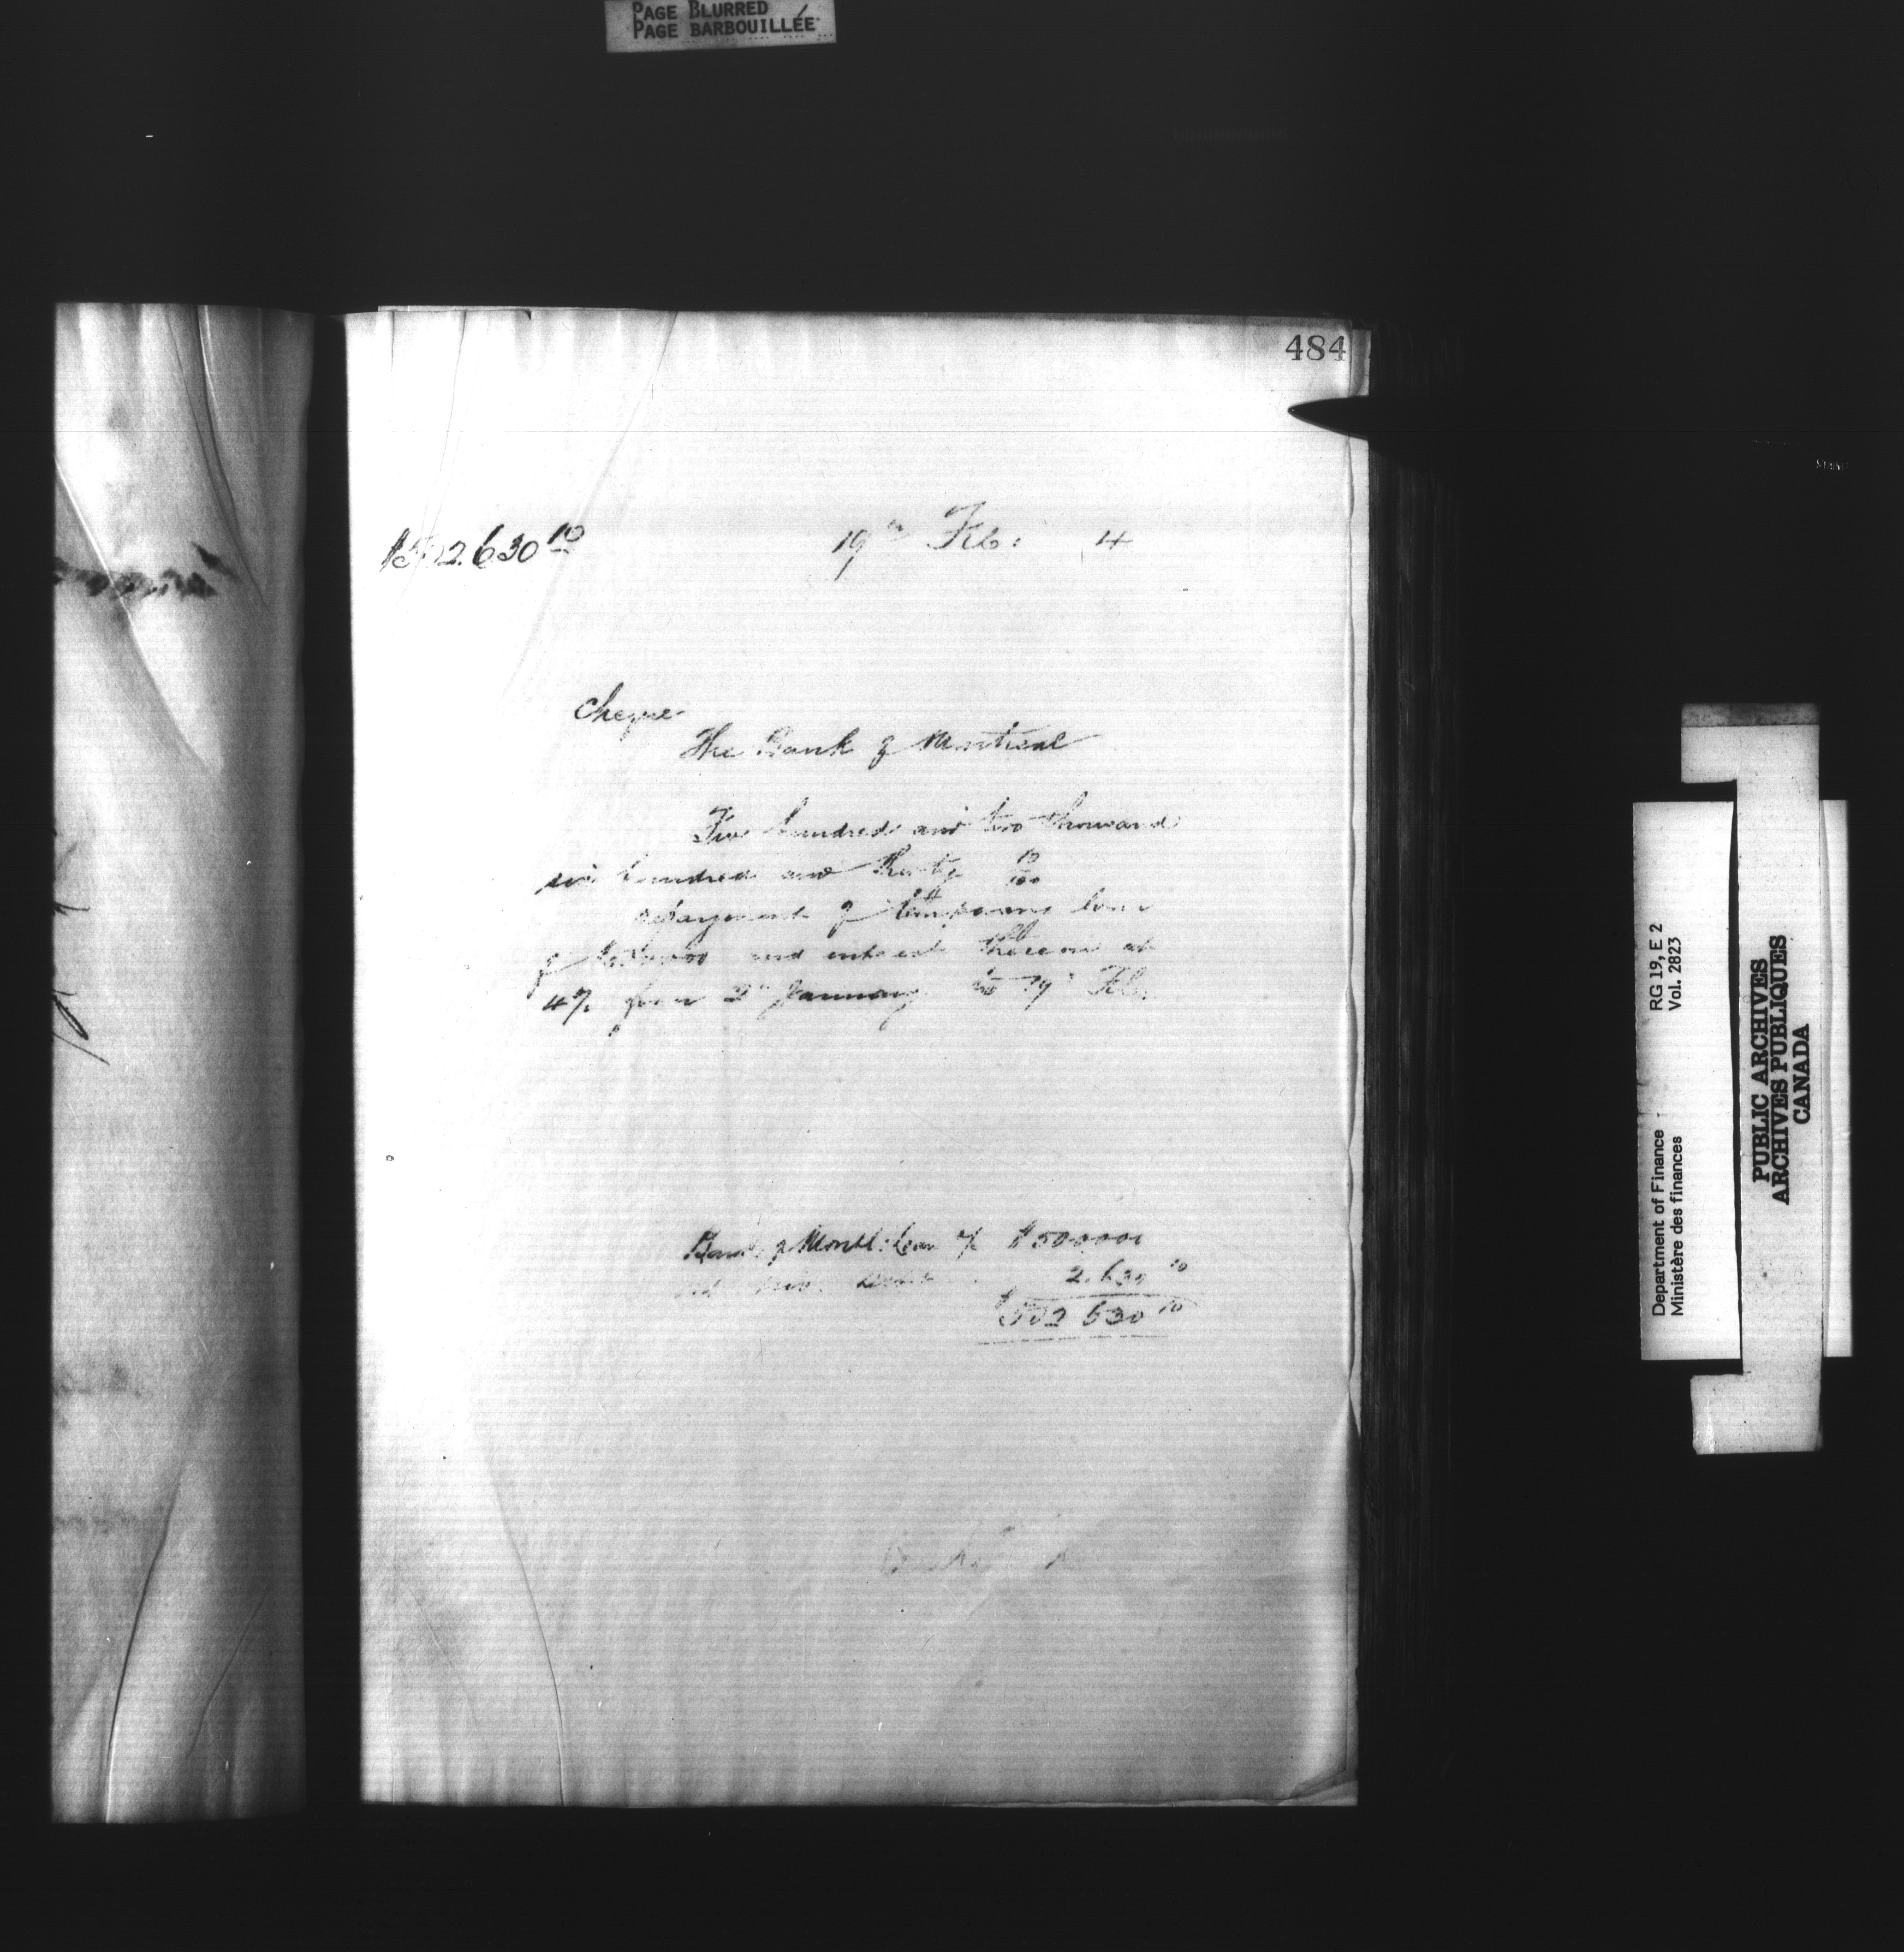 PAGE BLURRED
PAGE BARBOUILLÉE
484
$502.630 10
19th Feb: 4
Cheque
The Bank of Montreal
Five hundred and two thousand
six hundred and thirty 10/100
repayment of temporary loan
of and interest thereon at
4% from 2nd January to 19th Feb.
Bank of Montl: loan % $500000
2.630 10
$502 630 10
RG 19, E 2
Vol. 2823
Department of Finance
Ministère des finances
PUBLIC ARCHIVES
ARCHIVES PUBLIQUES
CANADA